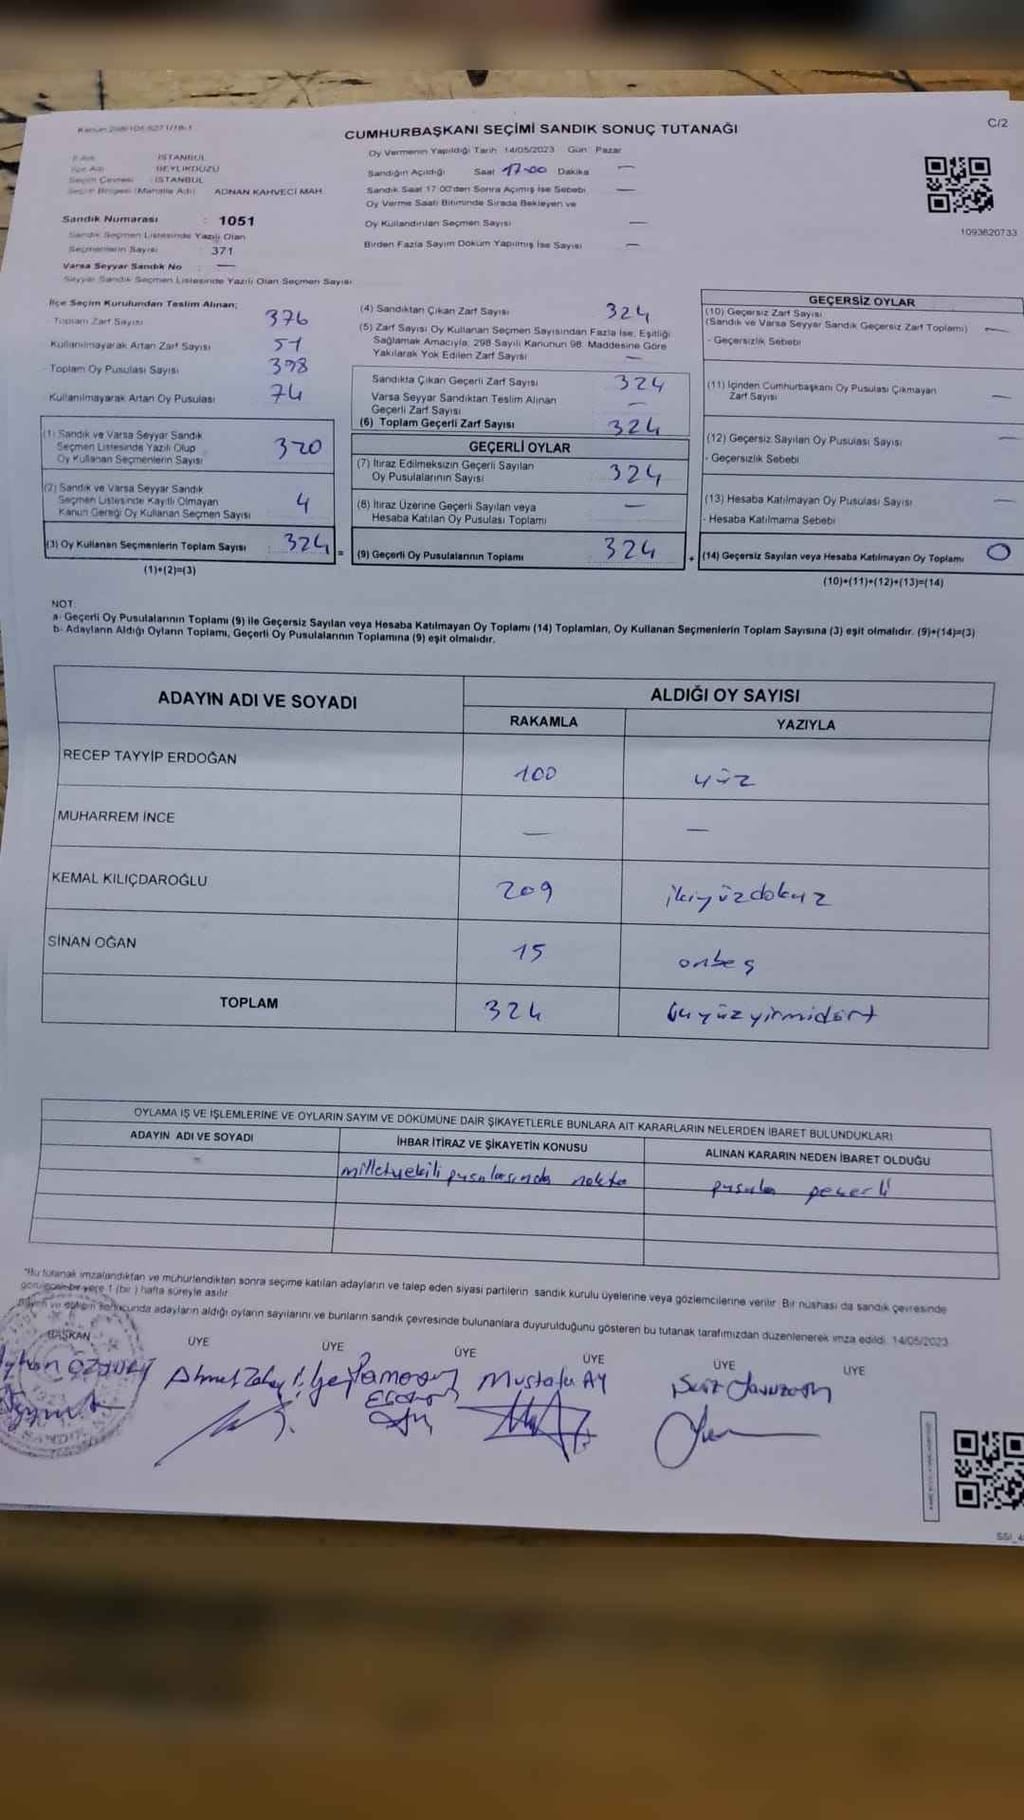 C/2
CUMHURBAŞKANI SEÇİMİ SANDIK SONUÇ TUTANAĞI
Oy Vermenin Yapıldığı Tarih 14/05/2023 Gün: Pazar
İSTANBUL
BEYLİKDÜZÜ
Seçim Çevresi İSTANBUL
Seçim Bölgesi (Mahalle Adı) ADNAN KAHVECİ MAH.
Sandık Numarası : 1051
Sandık Seçmen Listesinde Yazılı Olan
Seçmenlerin Sayısı : 371
Varsa Seyyar Sandık No : —
Seyyar Sandık Seçmen Listesinde Yazılı Olan Seçmen Sayısı
Sandığın Açıldığı Saat 17-00 Dakika —
Sandık Saat 17:00'den Sonra Açılmış İse Sebebi —
Oy Verme Saati Bitiminde Sırada Bekleyen ve
Oy Kullandırılan Seçmen Sayısı —
Birden Fazla Sayım Döküm Yapılmış İse Sayısı —
1093620733
İlçe Seçim Kurulundan Teslim Alınan;
- Toplam Zarf Sayısı 376
Kullanılmayarak Artan Zarf Sayısı 51
- Toplam Oy Pusulası Sayısı 398
Kullanılmayarak Artan Oy Pusulası 74
(1) Sandık ve Varsa Seyyar Sandık
Seçmen Listesinde Yazılı Olup
Oy Kullanan Seçmenlerin Sayısı 320
(2) Sandık ve Varsa Seyyar Sandık
Seçmen Listesinde Kayıtlı Olmayan
Kanun Gereği Oy Kullanan Seçmen Sayısı 4
(3) Oy Kullanan Seçmenlerin Toplam Sayısı 324 =
(1)+(2)=(3)
(4) Sandıktan Çıkan Zarf Sayısı 324
(5) Zarf Sayısı Oy Kullanan Seçmen Sayısından Fazla İse, Eşitliği
Sağlamak Amacıyla; 298 Sayılı Kanunun 98. Maddesine Göre
Yakılarak Yok Edilen Zarf Sayısı —
Sandıkta Çıkan Geçerli Zarf Sayısı 324
Varsa Seyyar Sandıktan Teslim Alınan
Geçerli Zarf Sayısı —
(6) Toplam Geçerli Zarf Sayısı 324
GEÇERLİ OYLAR
(7) İtiraz Edilmeksizin Geçerli Sayılan
Oy Pusulalarının Sayısı 324
(8) İtiraz Üzerine Geçerli Sayılan veya
Hesaba Katılan Oy Pusulası Toplamı —
(9) Geçerli Oy Pusulalarının Toplamı 324 +
GEÇERSİZ OYLAR
(10) Geçersiz Zarf Sayısı
(Sandık ve Varsa Seyyar Sandık Geçersiz Zarf Toplamı) —
- Geçersizlik Sebebi
(11) İçinden Cumhurbaşkanı Oy Pusulası Çıkmayan
Zarf Sayısı —
(12) Geçersiz Sayılan Oy Pusulası Sayısı —
- Geçersizlik Sebebi
(13) Hesaba Katılmayan Oy Pusulası Sayısı —
- Hesaba Katılmama Sebebi
(14) Geçersiz Sayılan veya Hesaba Katılmayan Oy Toplamı 0
(10)+(11)+(12)+(13)=(14)
NOT:
a- Geçerli Oy Pusulalarının Toplamı (9) ile Geçersiz Sayılan veya Hesaba Katılmayan Oy Toplamı (14) Toplamları, Oy Kullanan Seçmenlerin Toplam Sayısına (3) eşit olmalıdır. (9)+(14)=(3)
b- Adayların Aldığı Oyların Toplamı, Geçerli Oy Pusulalarının Toplamına (9) eşit olmalıdır.
ADAYIN ADI VE SOYADI ALDIĞI OY SAYISI
RAKAMLA YAZIYLA
RECEP TAYYİP ERDOĞAN 100 yüz
MUHARREM İNCE — —
KEMAL KILIÇDAROĞLU 209 ikiyüzdokuz
SİNAN OĞAN 15 onbeş
TOPLAM 324 üçyüzyirmidört
OYLAMA İŞ VE İŞLEMLERİNE VE OYLARIN SAYIM VE DÖKÜMÜNE DAİR ŞİKAYETLERLE BUNLARA AİT KARARLARIN NELERDEN İBARET BULUNDUKLARI
ADAYIN ADI VE SOYADI İHBAR İTİRAZ VE ŞİKAYETİN KONUSU ALINAN KARARIN NEDEN İBARET OLDUĞU
milletvekili pusulasında nokta pusula geçerli
*Bu tutanak imzalandıktan ve mühürlendikten sonra seçime katılan adayların ve talep eden siyasi partilerin sandık kurulu üyelerine veya gözlemcilerine verilir. Bir nüshası da sandık çevresinde
görülecek bir yere 1 (bir) hafta süreyle asılır.
sonucunda adayların aldığı oyların sayılarını ve bunların sandık çevresinde bulunanlara duyurulduğunu gösteren bu tutanak tarafımızdan düzenlenerek imza edildi. 14/05/2023
BAŞKAN ÜYE ÜYE ÜYE ÜYE ÜYE ÜYE
Mustafa AY